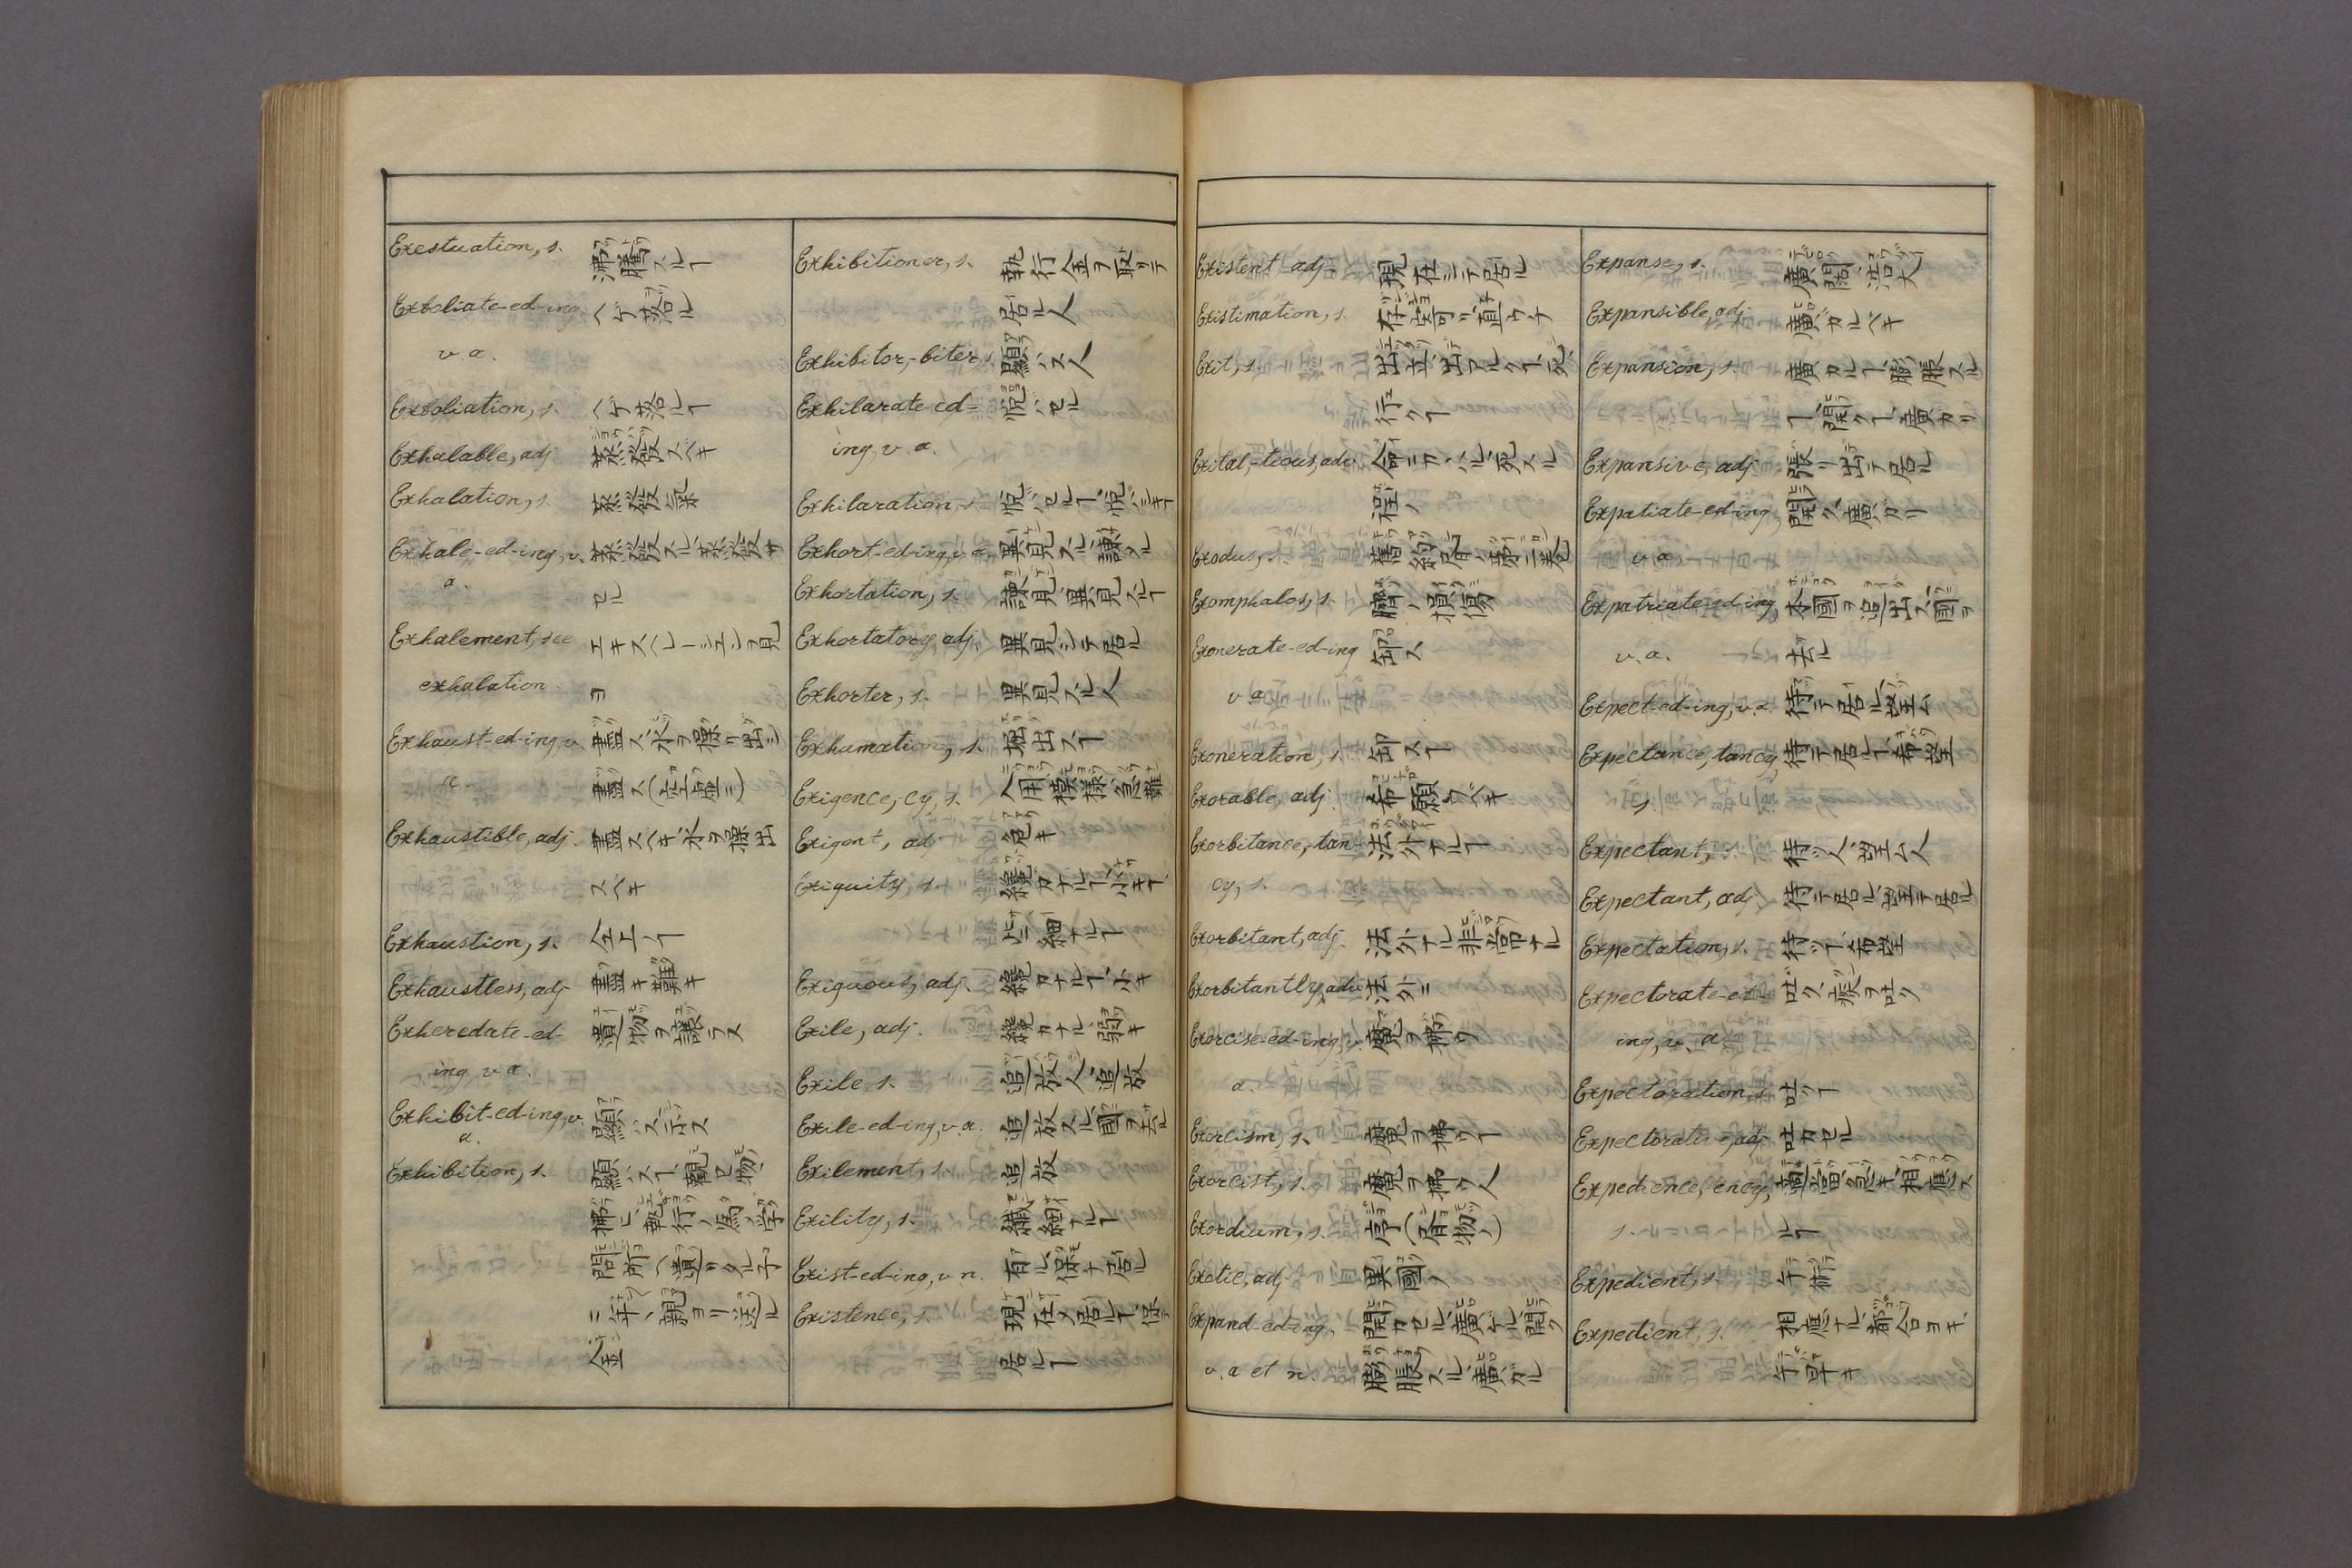 Exestuation, s. 沸騰スルヿ
Exfoliate-ed-ing ヘゲ落ル
v. a.
Exfoliation, s. ヘゲ落ルヿ
Exhalable, adj 蒸發スベキ
Exhalation, s. 蒸發氣
Exhale-ed-ing, v. 蒸發スル、蒸發サ
a. セル
Exhalement, see エキスヘレーシェンヲ見
exhalation ヨ
Exhaust-ed-ing, v. 盡ス、水ヲ 出シ
a. 盡ス(空虚ニ)
Exhaustible, adj. 盡スベキ、水ヲ 出
スベキ
Exhaustion, s. 仝上ノヿ
Exhaustless, adj 盡キ難キ
Exheredate-ed 遺物ヲ譲ラヌ
ing v a.
Exhibit-ed-ing, v. 顯ハス、示ス
a.
Exhibition, s. 顯ハスヿ、觀セ物、
拂ヒ、執行ノ為ノ学
問所ヘ遣リタル子
ニ年、親ヨリ送ル
金
Exhibitioner, s. 執行金ヲ取リテ
居ル人
Exhibitor,-biter, s. 顯ハス人
Exhilarate-ed= 悦バセル
ing, v. a.
Exhilaration, s. 悦バセルヿ、悦バシキヿ
Exhort-ed-ing, v a. 異見スル、諌ル
Exhortation, s. 諌見、異見スルヿ
Exhortatory, adj. 異見シテ居ル
Exhorter, s. 異見スル人
Exhumation, s. 掘出スヿ
Exigence,-cy, s. 入用、模様、急難
Exigent, adj 危キ
Exiguity, s. 纔カナルヿ、小キヿ、
些細ナルヿ
Exiguous, adj. 纔カナルヿ、小キ
Exile, adj. 纔カナル、弱キ
Exile, s. 追放人、追放
Exile-ed-ing, v. a. 追放スル、國ヲ去ル
Exilement, s. 追放
Exility, s. 纖細ナルヿ
Exist-ed-ing, v n. 有ル、保チ居ル
Existence, s. 現在ノ居ルヿ、保チ
居ルヿ
Existent adj. 現在シテ居ル
Existimation, s. 存寄リ、直ウチ
Exit, s. 出立、出アルクヿ、死、
行クヿ
Exital,-tious, adj. 命ニカヽハル、死スル
程ノ
Exodus, s. 舊約書ノ第二巻
Exomphalos, s. 臍ノ損傷
Exonerate-ed-ing 卸ス
v. a.
Exoneration, s. 卸スヿ
Exorable, adj. 希願フベキ
Exorbitance,-tan 法外ナルヿ
cy, s.
Exorbitant, adj. 法外ナル、非常ナル
Exorbitantly, adv 法外ニ
Exorcise-ed-ing, v. 魔ヲ拂フ
a.
Exorcism, s. 魔ヲ拂フヿ
Exorcist, s. 魔ヲ拂フ人
Exordium, s. 序(書物ノ)
Exotic, adj. 異國ノ
Expand-ed-ing, 開カセル、廣ゲル、開ク
v. a et n. 膨脹スル、廣ガル
Expanse, s. 廣濶、浩大
Expansible, adj. 廣ガルベキ
Expansion, s. 廣ガルヿ、膨脹スル
ヿ、開クヿ、廣ガリ
Expansive, adj. 張リ出テ居ル
Expatiate-ed-ing, 開ク、廣ガリ
v. a.
Expatriate-ed-ing, 本國ヲ追出ス、國ヲ
v. a. 去ル
Expect-ed-ing, v. a. 待テ居ル、望ム
Expectance, tancy, 待テ居ルヿ、希望
s.
Expectant, s. 待ツ人、望ム人
Expectant, adj. 待テ居ル、望テ居ル
Expectation, s. 待ツヿ、希望
Expectorate-ed= 吐ク、痰ヲ吐ク
ing, v. a.
Expectoration, s. 吐クヿ
Expectorative, adj 吐カセル
Expedience, ency, 適當、急キ、相應ス
s. ルヿ
Expedient, s. 手術
Expedient, s. 相應ナル、都合ヨキ、
手早キ